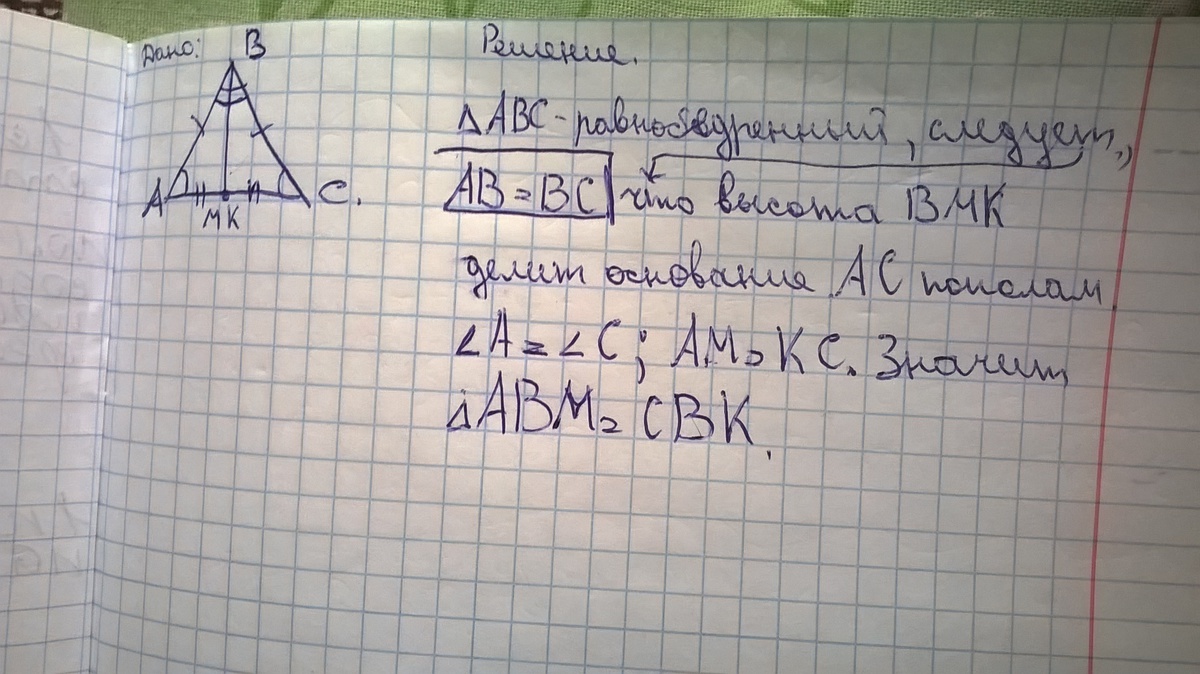 Дано:
B
A
C.
MK
Решение.
△ABC - равнобедренный, следует,
AB = BC что высота BMK
делит основание AC пополам
∠A = ∠C; AM = KC. Значит
△ABM = CBK.